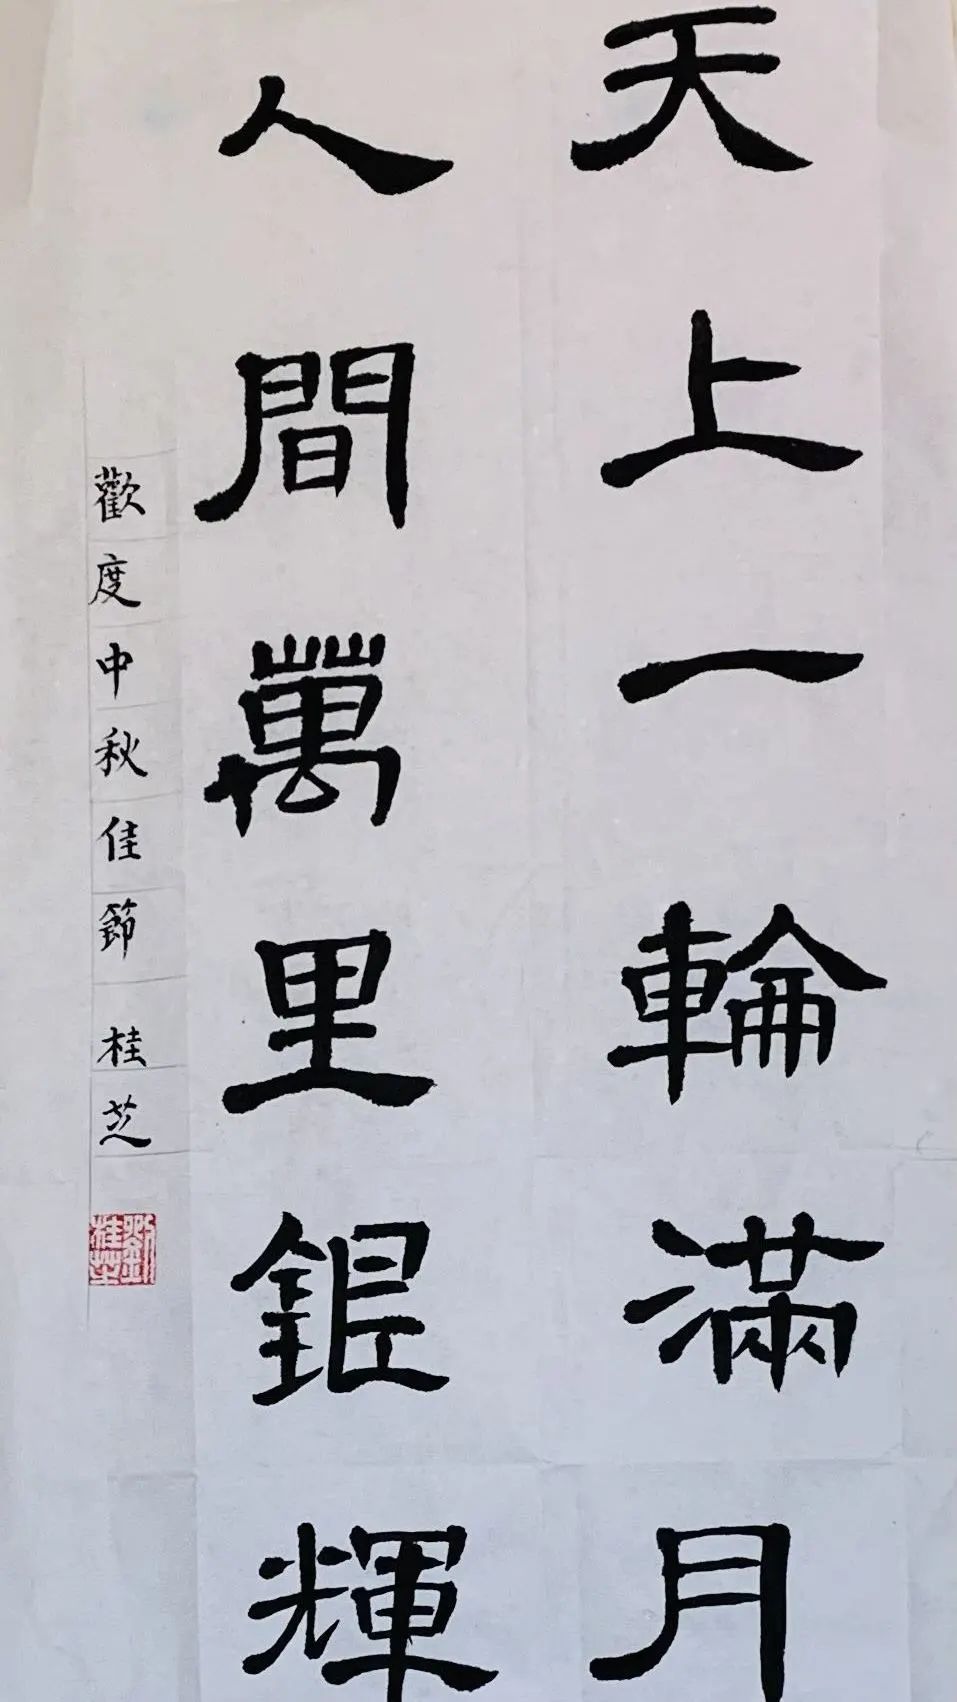 天上一輪滿月
人間萬里銀輝
歡度中秋佳節 桂芝
劉桂芝